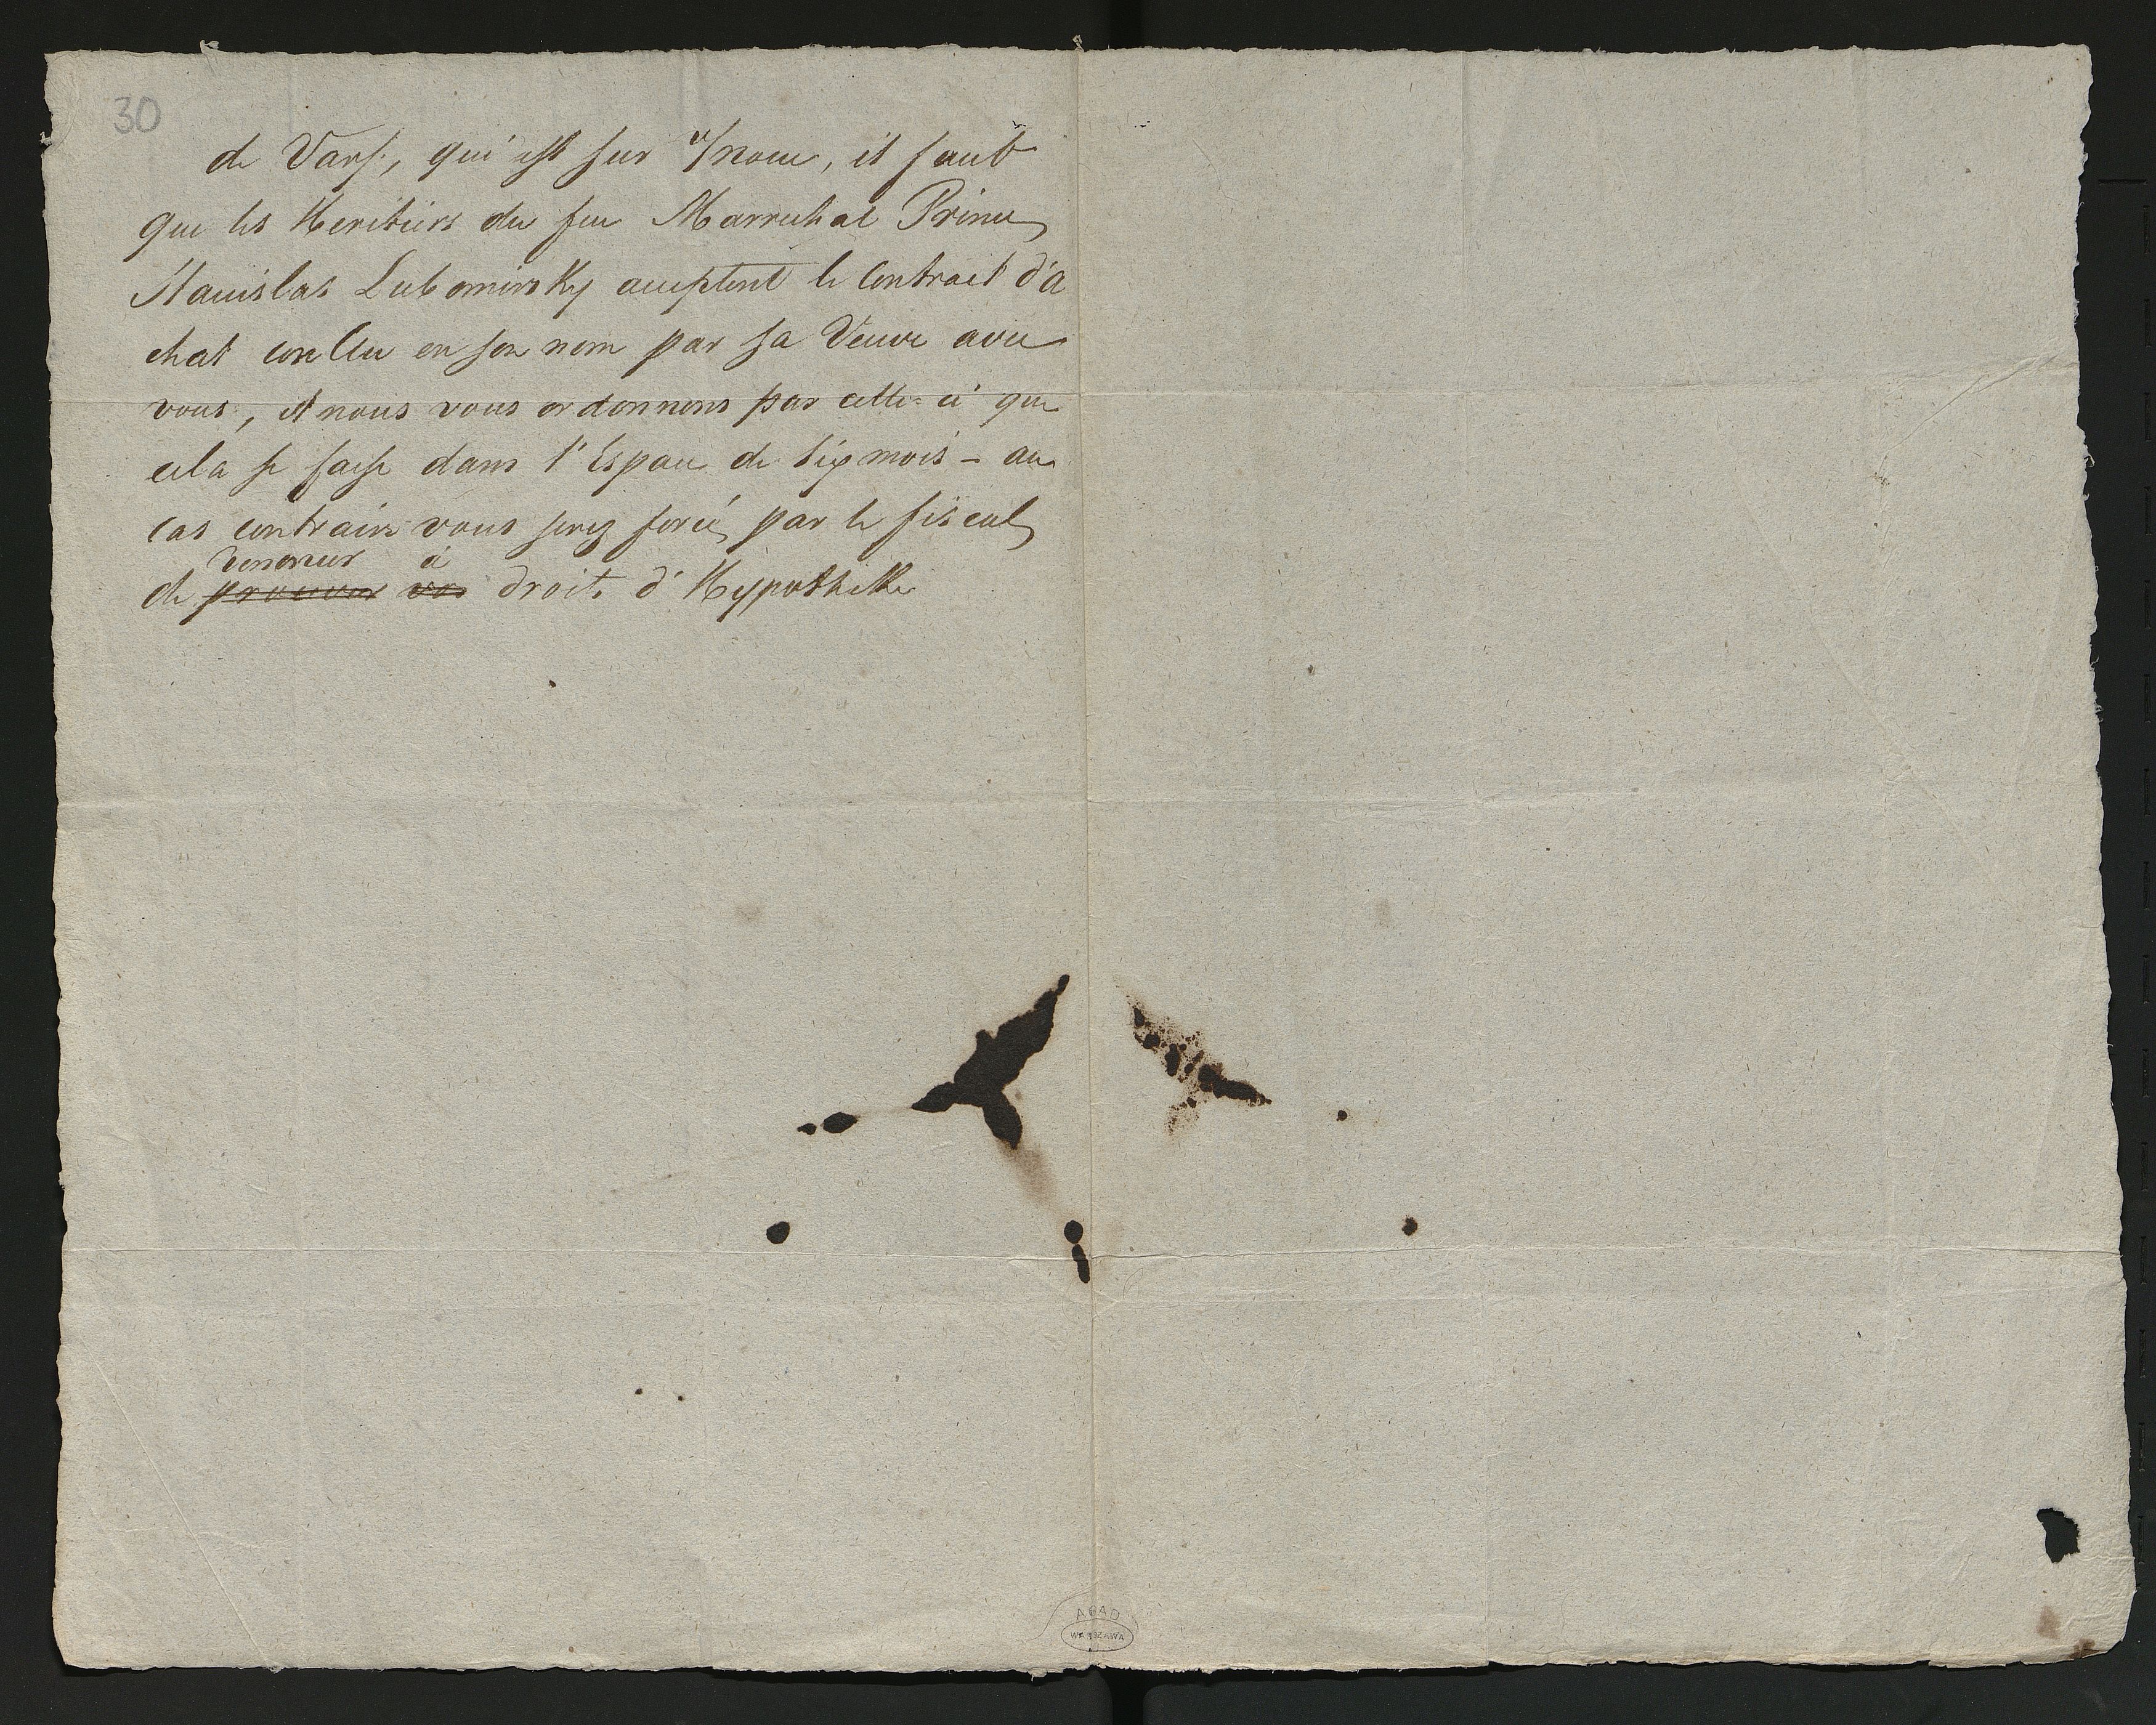 30
de Vars:, qui est sur v/nom, il faut
que les Heritiers du feu Marrechal Prince
Stanislas Lubomirsky acceptent le Contract d'a
chat conclu en son nom par sa Veuve avec
vous, et nous vous ordonnons par celle-ci que
cela se fasse dans l'Espace de Six mois - au
cas contraire vous serez forcé par le fiscal
renoncer à
de prouver vos droit d'Hypotheke
AGAD
WARSZAWA